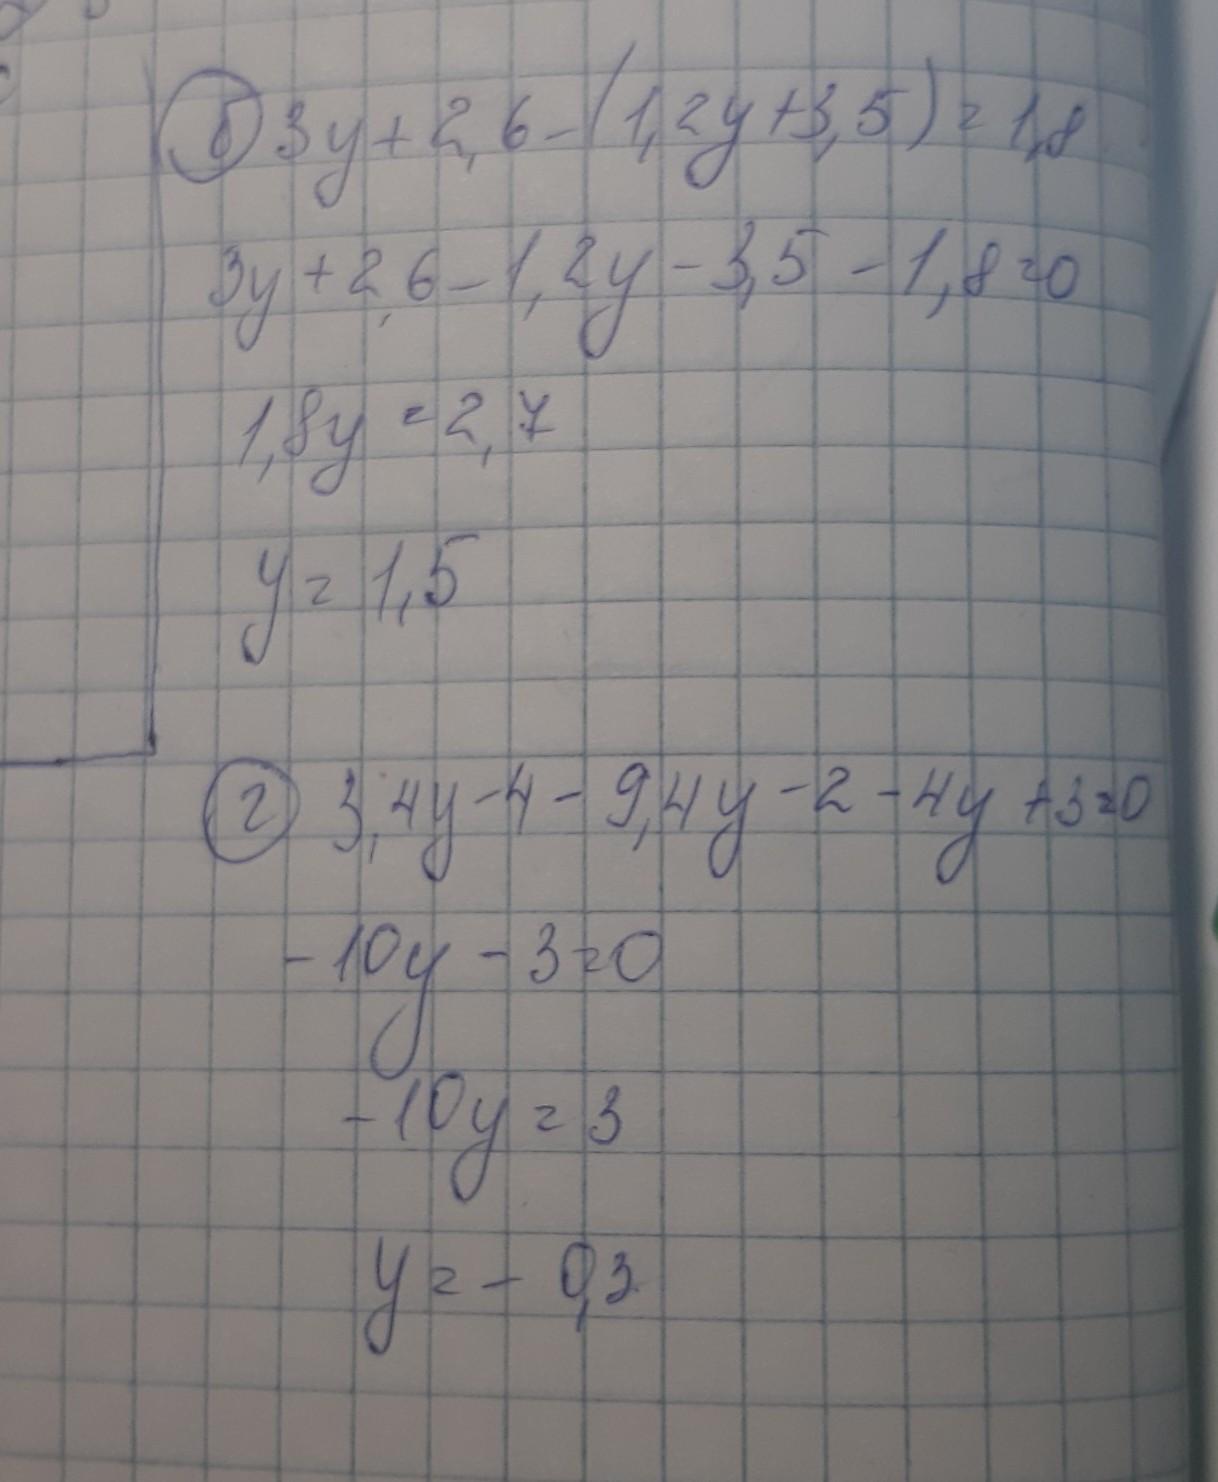 б) 3y+2,6-(1,2y+3,5)=1,8
3y+2,6-1,2y-3,5-1,8=0
1,8y=2,7
y=1,5
г) 3,4y-4-9,4y-2-4y+3=0
-10y-3=0
-10y=3
y=-0,3